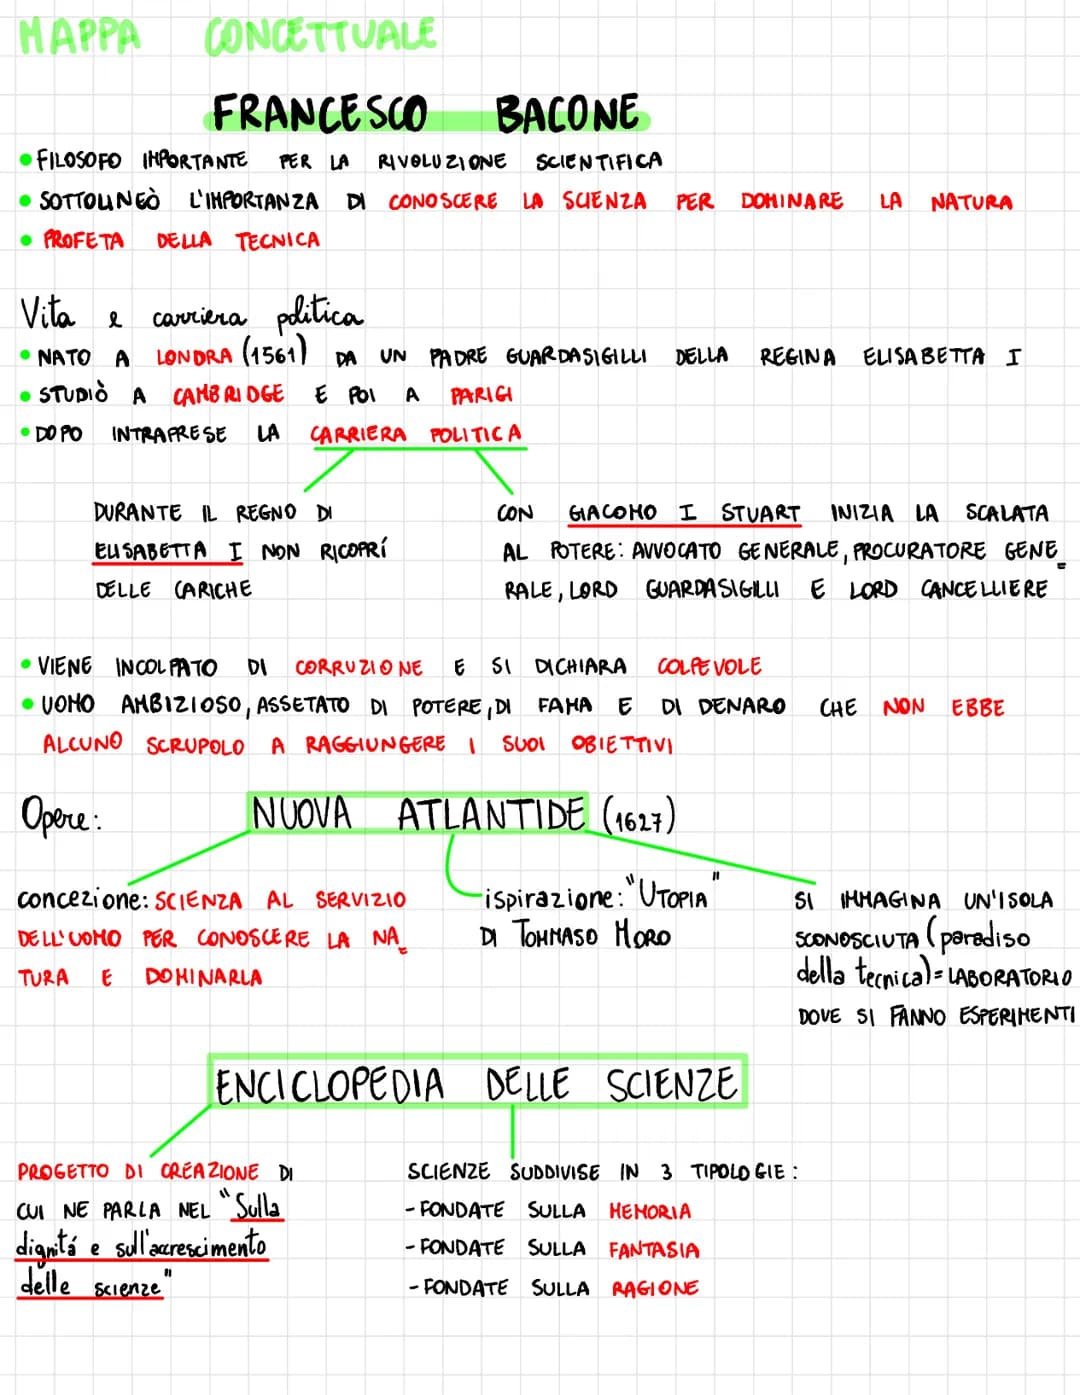 MAPPA CONCETTUALE
FRANCESCO BACONE
• FILOSOFO IMPORTANTE PER LA RIVOLUZIONE SCIENTIFICA
• SOTTOLINEÒ L'IMPORTANZA DI CONOSCERE LA SCIENZA PER DOMINARE LA NATURA
• PROFETA DELLA TECNICA
Vita e carriera politica
• NATO A LONDRA (1561) DA UN PADRE GUARDASIGILLI DELLA REGINA ELISABETTA I
• STUDIÒ A CAMBRIDGE E POI A PARIGI
• DOPO INTRAPRESE LA CARRIERA POLITICA
DURANTE IL REGNO DI
ELISABETTA I NON RICOPRÍ
DELLE CARICHE
CON GIACOMO I STUART INIZIA LA SCALATA
AL POTERE: AVVOCATO GENERALE, PROCURATORE GENE=
RALE, LORD GUARDASIGILLI E LORD CANCELLIERE
• VIENE INCOLPATO DI CORRUZIONE E SI DICHIARA COLPEVOLE
• UOMO AMBIZIOSO, ASSETATO DI POTERE, DI FAMA E DI DENARO CHE NON EBBE
ALCUNO SCRUPOLO A RAGGIUNGERE I SUOI OBIETTIVI
Opere: NUOVA ATLANTIDE (1627)
concezione: SCIENZA AL SERVIZIO
DELL'UOMO PER CONOSCERE LA NA=
TURA E DOMINARLA
ispirazione: "UTOPIA"
DI TOMMASO MORO
SI IMMAGINA UN'ISOLA
SCONOSCIUTA (paradiso
della tecnica) = LABORATORIO
DOVE SI FANNO ESPERIMENTI
ENCICLOPEDIA DELLE SCIENZE
PROGETTO DI CREAZIONE DI
CUI NE PARLA NEL "Sulla
dignitá e sull'accrescimento
delle scienze"
SCIENZE SUDDIVISE IN 3 TIPOLOGIE:
- FONDATE SULLA MEMORIA
- FONDATE SULLA FANTASIA
- FONDATE SULLA RAGIONE